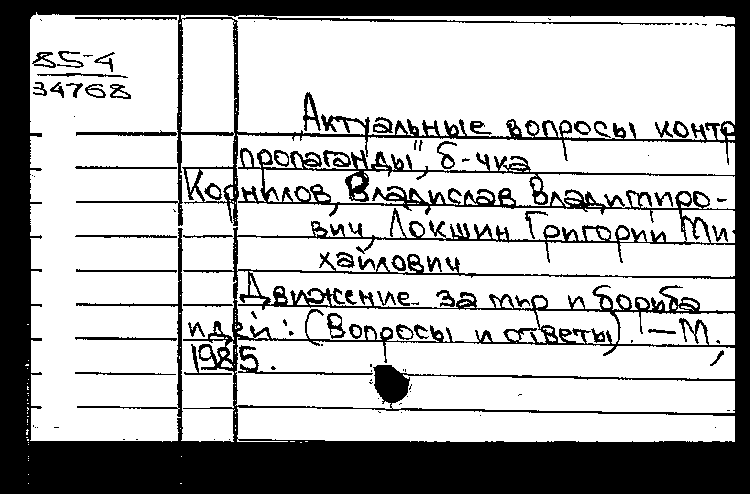 85-4
34768
"Актуальные вопросы контр
пропаганды", б-чка
Корнилов, Владислав Владимиро-
вич, Локшин Григорий Ми-
хайлович
Движение за мир и борьба
идей: (Вопросы и ответы). — М.,
1985.